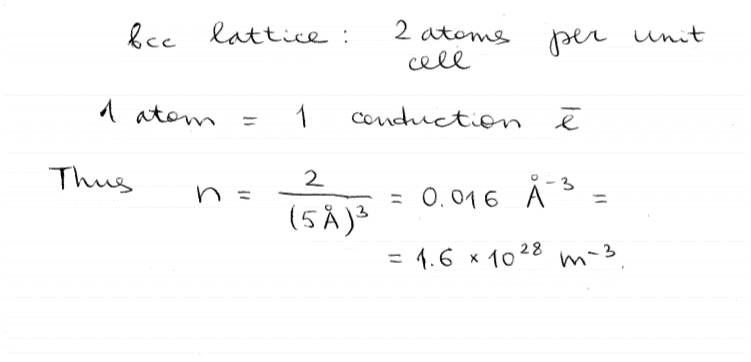 bcc lattice : 2 atoms per unit
cell
1 atom = 1 conduction ē
Thus n = 2 / (5 Å)³ = 0.016 Å⁻³ =
= 1.6 × 10²⁸ m⁻³.